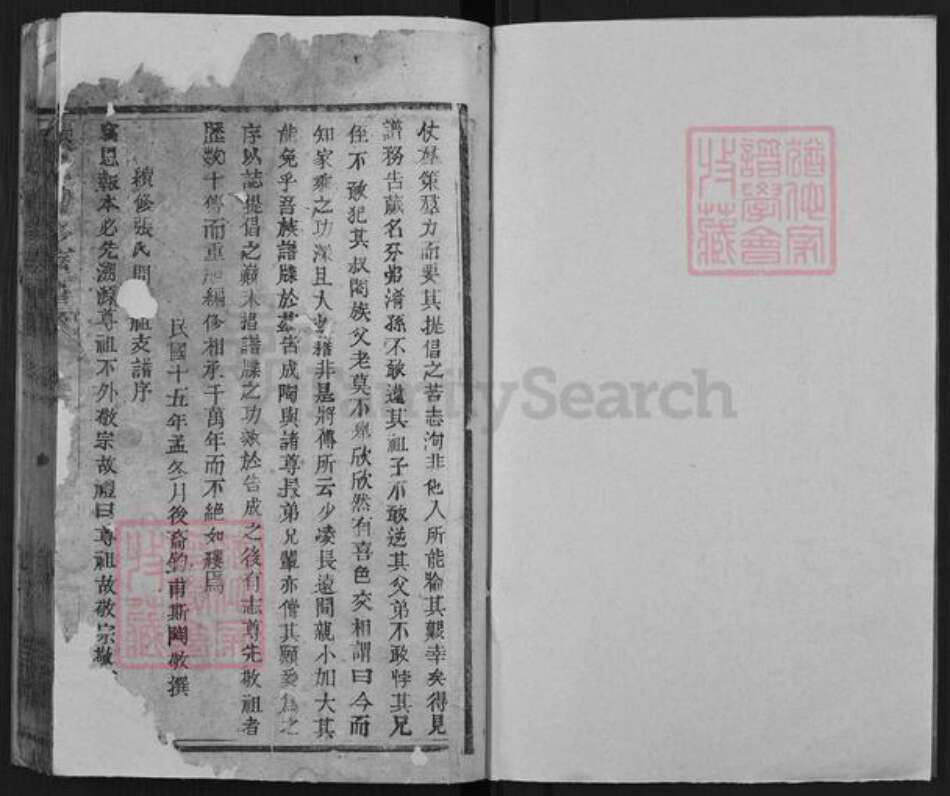 仗群策羣力而要其提倡之苦志洵非他人所能喻其艱幸矣得見
譜務告蕆名分弗淆孫不敢違其祖子不敢逆其父弟不敢悖其兄
侄不敢犯其叔閤族父老莫不欣欣然有喜色交相謂曰今而
知家乘之功深且大也豈非是將傳所云少凌長遠間親小加大其
能免乎吾族譜牒於茲告成陶與諸尊長弟兄輩亦償其願爰為之
序以誌提倡之巔末揩譜牒之功效於告成之後有志尊先敬祖者
歷數十傳而重編修相承千萬年而不絕如縷焉
民國十五年孟冬月後裔鈞甫斯陶敬撰
續修張氏祖支譜序
思報本必先溯源尊祖不外敬宗故禮曰尊祖故敬宗敬
猶他家譜學會收藏
FamilySearch